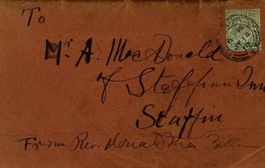 To
Mr A. MacDonald
of Staffinn Inn
Staffin
From Rev. Donald